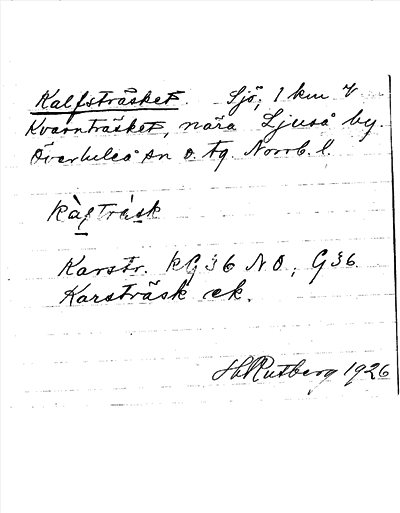 Kalfsträsket. Sjö, 1 km V
Kvarnträsket, nära Ljuså by.
Överluleå sn o. tg. Norrb. l.
kàfträsk
Karstr. kG 36 NO, G36.
Karsträsk ek.
HRutberg 1926